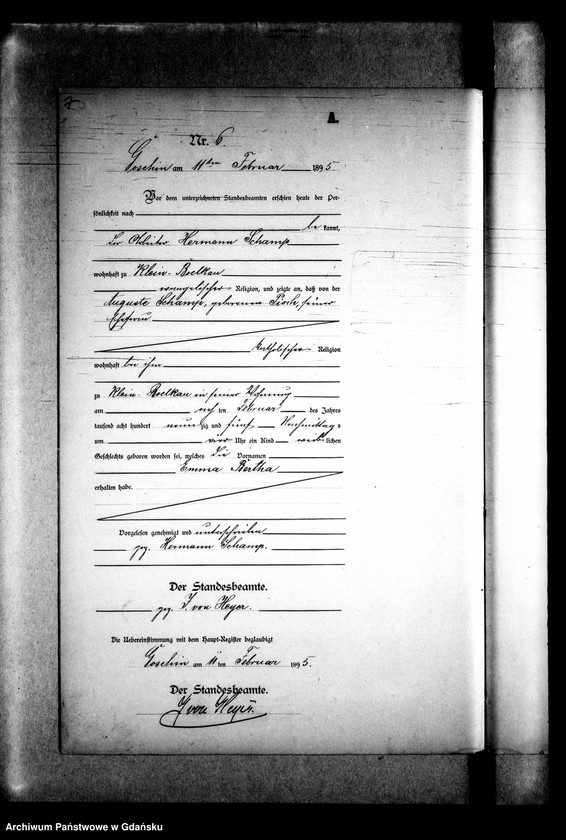 A.
Nr. 6.
Goschin am 11ten Februar 1895.
Vor dem unterzeichneten Standesbeamten erschien heute der Per-
sönlichkeit nach
be kannt,
der Arbeiter Hermann Schamp
wohnhaft zu Klein-Boelkau
evangelischer Religion, und zeigte an, daß von der
Auguste Schamp, geborenen, seiner
Ehefrau
katholischer Religion
wohnhaft bei ihm
zu Klein-Boelkau in seiner Wohnung
am ten Februar des Jahres
tausend acht hundert neunzig und fünf Nachmittags
um vier Uhr ein Kind weiblichen
Geschlechts geboren worden sei, welches die Vornamen
Emma Bertha
erhalten habe.
Vorgelesen, genehmigt und unterschrieben
gez. Hermann Schamp.
Der Standesbeamte.
gez. J. von Heyer.
Die Uebereinstimmung mit dem Haupt-Register beglaubigt
Goschin am 11ten Februar 1895.
Der Standesbeamte.
J von Heyer.
Archiwum Państwowe w Gdańsku